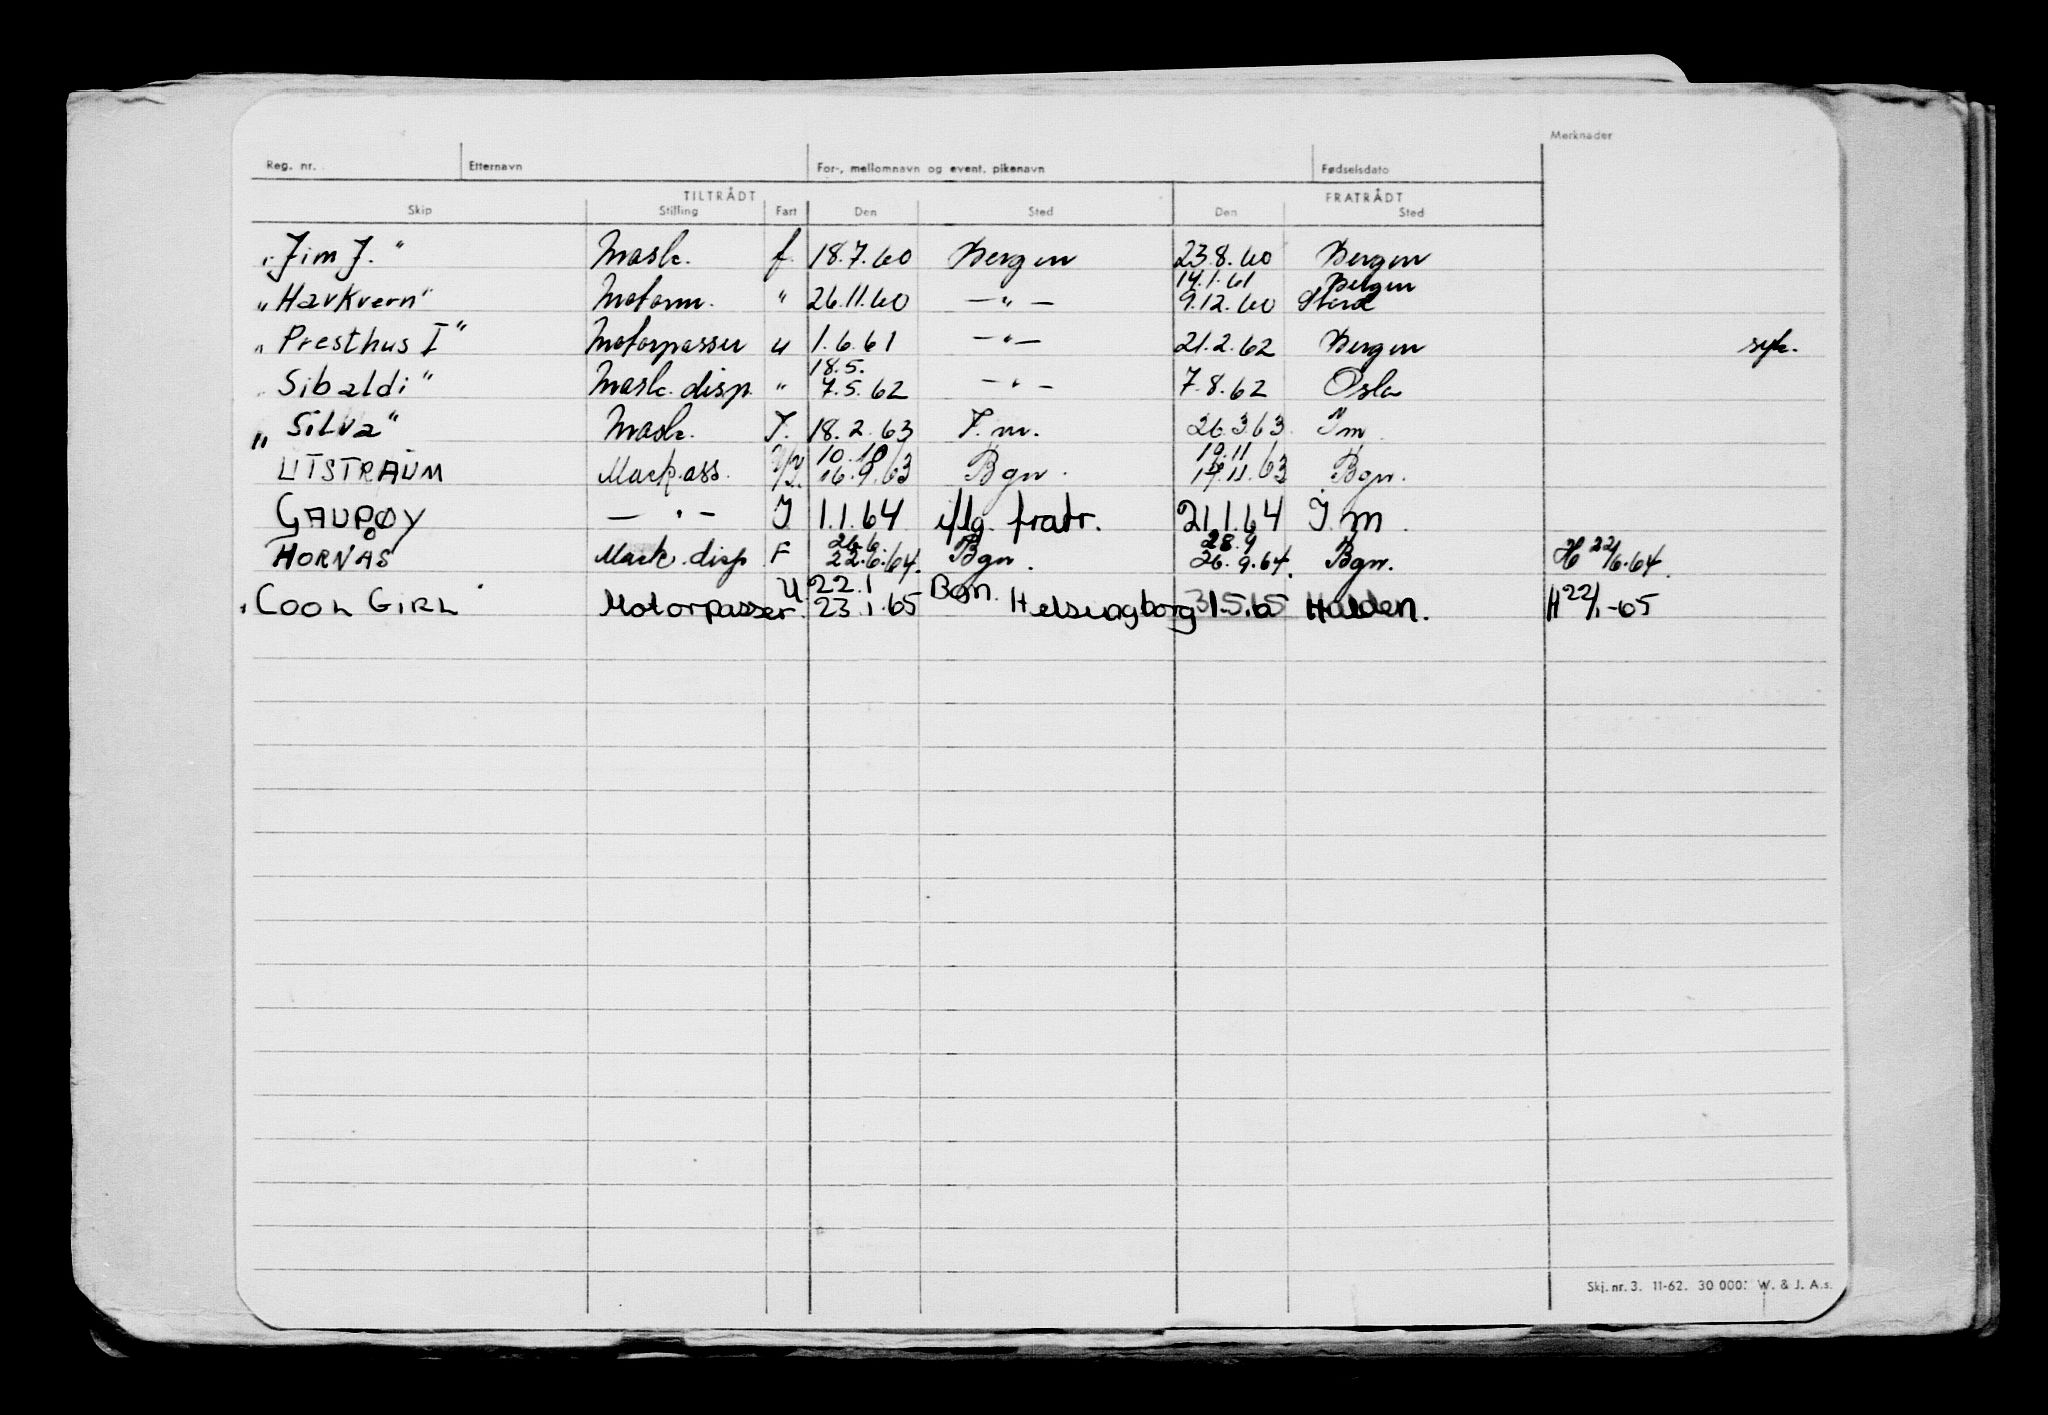 Merknader
Reg. nr. Etternavn For-, mellomnavn og event. pikenavn Fødselsdato
TILTRÅDT FRATRÅDT
Skip Stilling Fart Den Sted Den Sted
"Jim J." Mask. f. 18.7.60 Bergen 23.8.60 Bergen
14.1.61 Bergen
"Havkvern" Motorm. " 26.11.60 — " — 9.12.60 Stord
"Presthus I" Motorpasser u 1.6.61 — " — 21.2.62 Bergen syk.
18.5.
"Sibaldi" Mask. disp. " 7.5.62 — " — 7.8.62 Oslo
"Silva" Mask. J. 18.2.63 J.m. 26.3.63. J m
10.10 19.11
UTSTRAUM Mask.ass. 16.9.63 Bgn. 19.11.63 Bgn.
GAUPØY — " — J 1.1.64 iflg. fratr. 21.1.64 J.m.
26.6. 28.9
HORNÅS Mask. disp F 22.6.64. Bgn. 26.9.64. Bgn. H 22/6.64.
U 22.1 Bgn.
"COOL GIRL" Motorpasser. 23.1.65 Helsingborg Halden. H 22/1-65
Skj. nr. 3. 11-62. 30 000. W. & J. A.s.